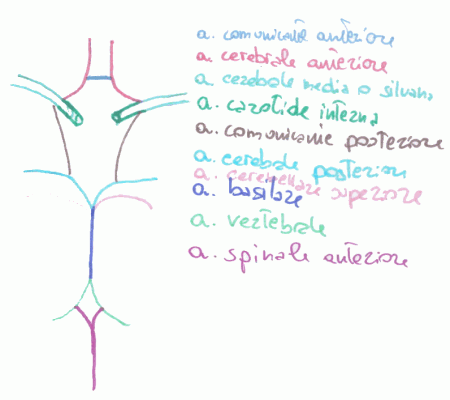 a. comunicante anteriore
a. cerebrale anteriore
a. cerebrale media o silviana
a. carotide interna
a. comunicante posteriore
a. cerebrale posteriore
a. cerebellare superiore
a. basilare
a. vertebrale
a. spinale anteriore